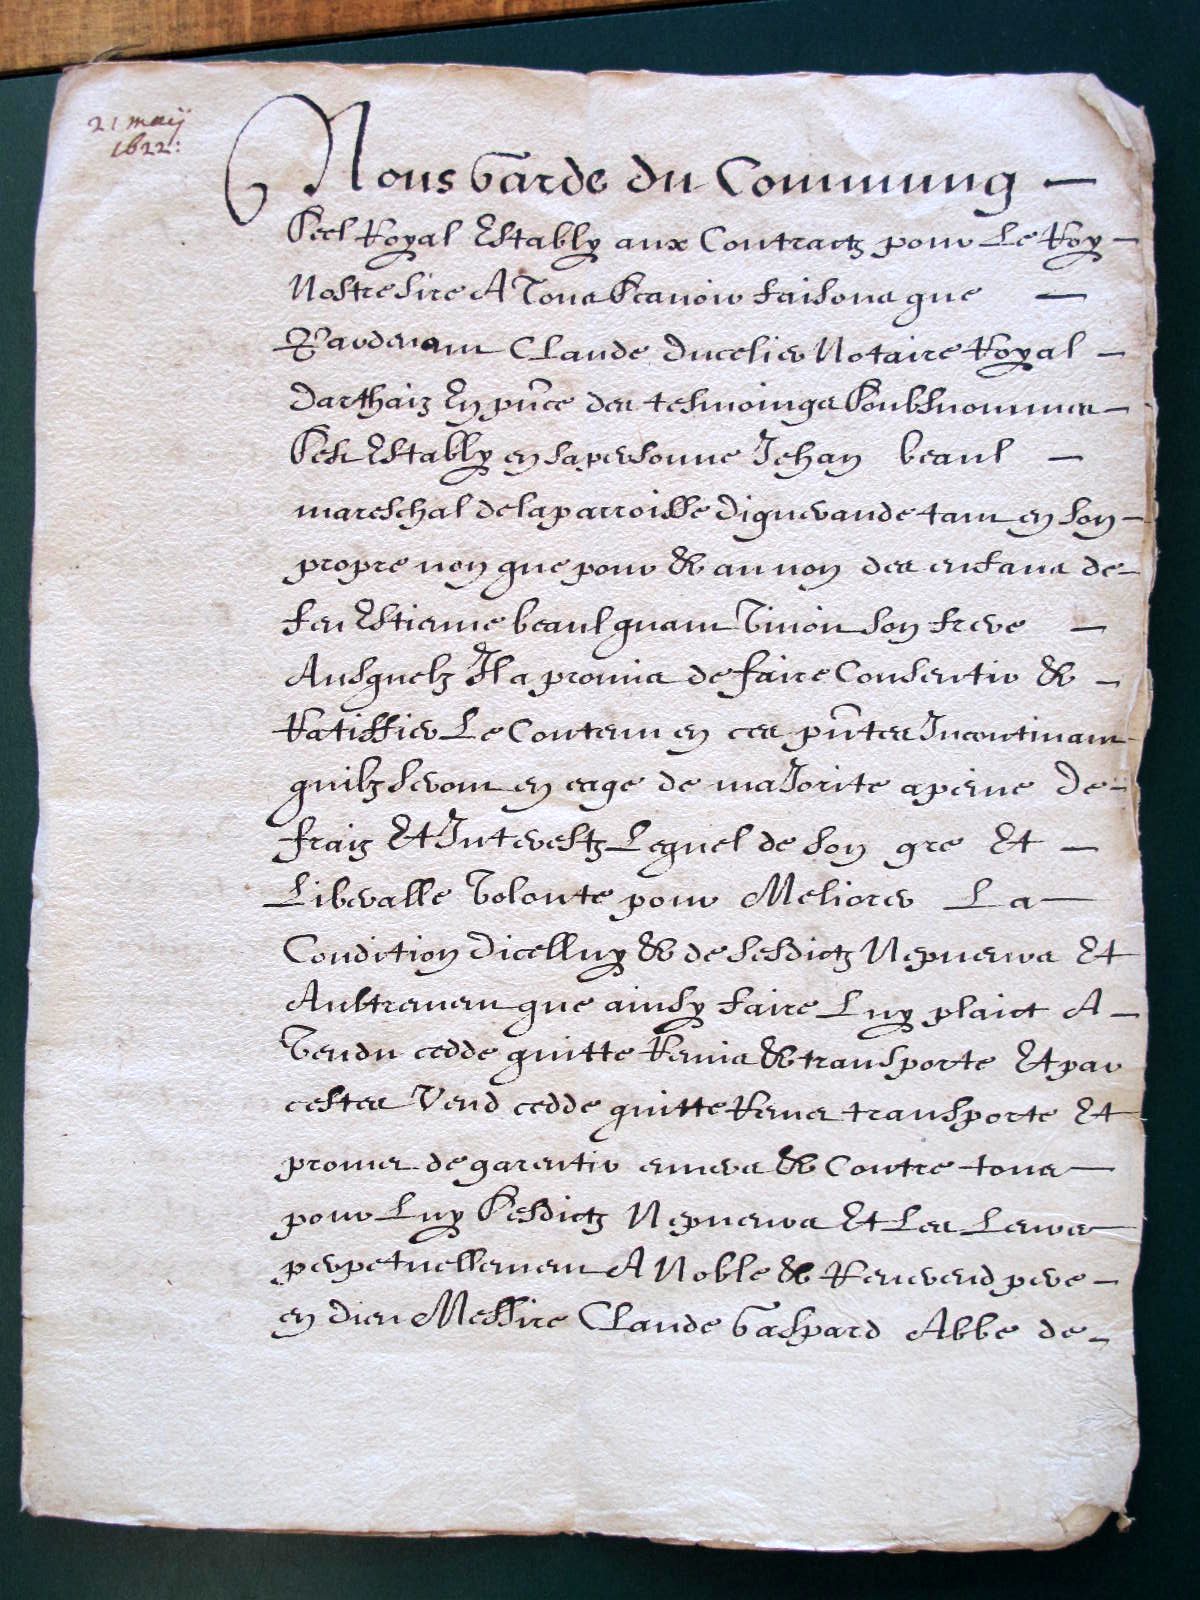 21 maij
1622:
Nous Garde du Commung
Seel Royal Estably aux Contractz pour Le Roy
Nostre sire A Tous Scavoir faisons que
Pardevant Claude Ducelier Notaire Royal
Darthaiz En pnce des tesmoings Soubsnommes
Sest Estably en sa personne Jehan beaul
mareschal de la parroisse diguerande tant en son
propre non que pour & au non des enfans de
feu Estienne beaul quant Vivoit son frere
Ausquelz Il a promis de faire Consentir &
Ratiffier Le Contenu en ces pntes Incontinant
quilz seront en eage de maJorite a peine De
fraiz Et Interestz Lequel de son gre Et
Liberalle Volonte pour Meliorer La
Condition dicelluy & de sesdictz Nepveurs Et
Aultrement que ainsy faire Luy plaict A
Vendu cedde quitte Remis & transporte Et par
cestes Vend cedde quitte Remet transporte Et
promet de garentir envers & Contre tous
pour Luy Sesdictz Nepveurs Et Les Leurs
perpetuellement A Noble & Reverend pere
en dieu Messire Claude Gaspard Abbe de